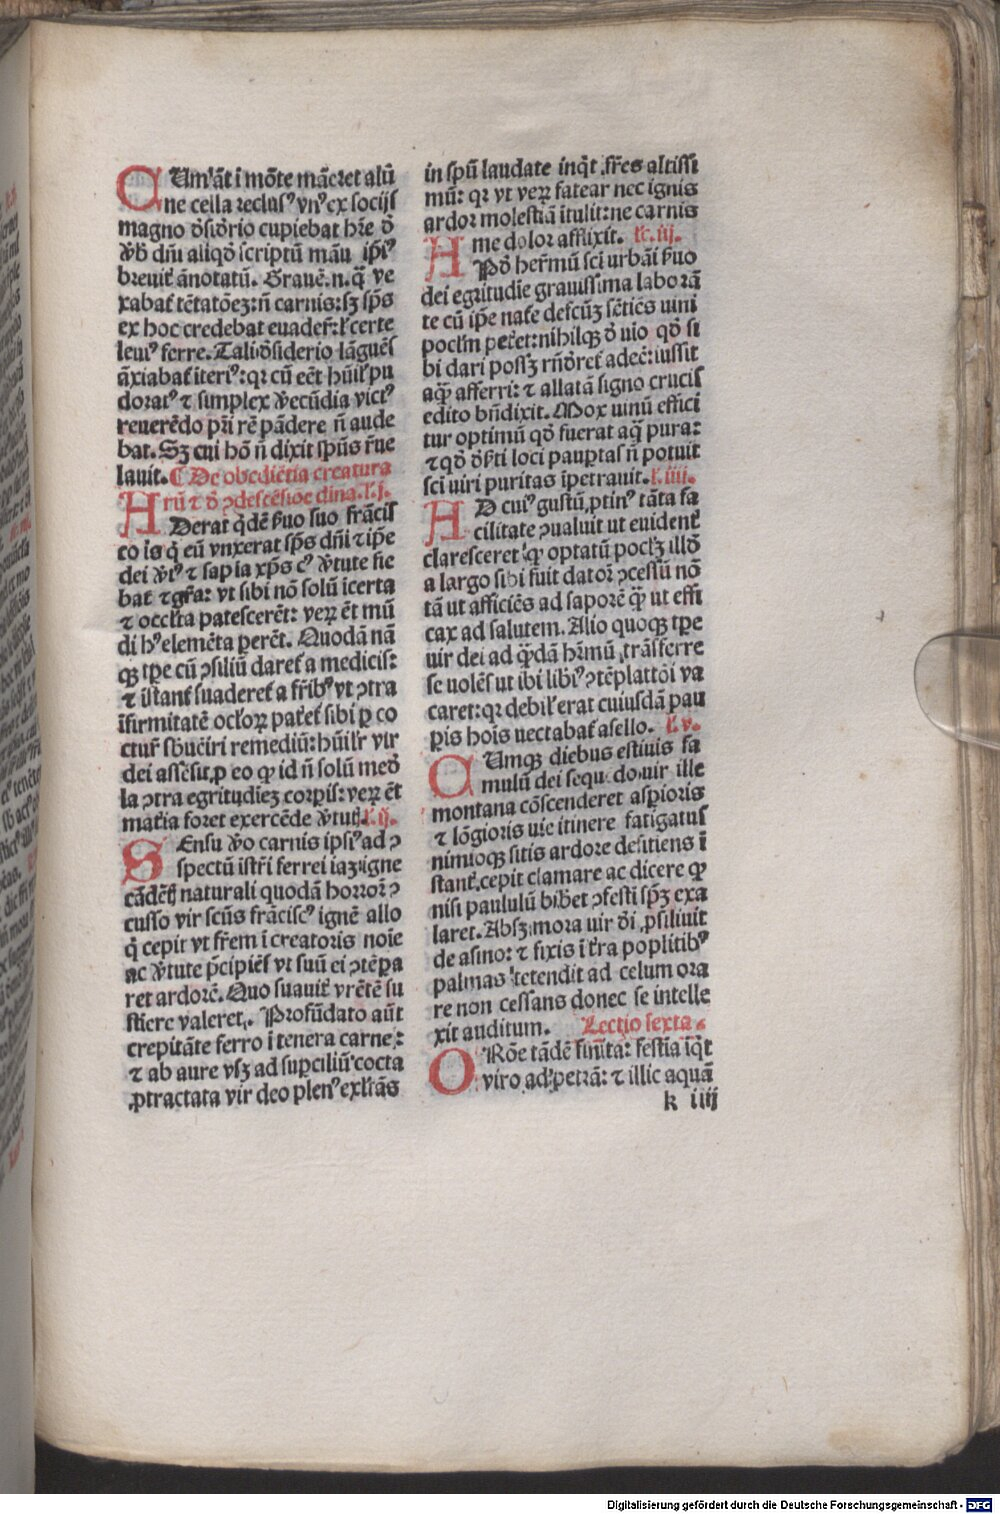 CUm aūt ī mōte māeret alū
ne cella reclusꝰ vnꝰ ex socijs
magno ďsiďrio cupiebat hr̄e ď
v̓b̓ dn̄i aliqď scriptū māu ip̄iꝰ
breuit̓ ānotatū. Grauē.n.q̄ ve
xabat̓ tētatōeꝫ: n̄ carnis: sꝫ sp̄s
ex hoc credebat euadeř: l̓ certe
leuiꝰ ferre. Tali ďsiderio lāguēs
āxiabat̓ iteriꝰ: qꝛ cū eēt hūil̓ pu
doratꝰ ⁊ simplex v̓ecūdia victꝰ
reuerēdo pr̄i rē pādere n̄ aude
bat. Sꝫ cui hō n̄ dixit spūs r̄ue
lauit. ¶ De obediētia creatura
rū ⁊ ď ꝯdescēsioe dina. l̓.j.
ADerat q̓dē ẜuo suo frācis
co is q̓ eū vnxerat sp̄s dn̄i ⁊ ip̄e
dei v̓tꝰ ⁊ sapia xp̄s cꝰ v̓tute fie
bat ⁊ gr̄a: vt sibi nō solū īcerta
⁊ occl̓ta patescerēt: veꝝ ēt mū
di hꝰ elemēta ꝑerēt. Quodā nā
qꝫ tꝑe cū ꝯsiliū daret̓ a medicis:
⁊ īstant̓ suaderet̓ a fr̄ibꝰ vt ꝯtra
īfirmitatē ocl̓oꝝ pat̓et̓ sibi ꝑ co
ctur̄ sb̓uēiri remediū: hūil̓r vir
dei assēsit, ꝓ eo ꝙ id n̄ solū meď
la ꝯtra egritudīeꝫ corꝑis: veꝝ ēt
mat̓ia foret exercēde v̓tutꝭ. l̓.ij.
SEnsu v̓o carnis ipsiꝰ ad ꝯ
spectū īstr̄i ferrei iaꝫ igne
cādētꝭ naturali quodā horrorē ꝯ
cusso vir scūs frāciscꝰ ignē allo
q̓ cepit vt fr̄em ī creatoris noīe
ac v̓tute p̄cipiēs vt suū ei ꝯtēꝑa
ret ardorē. Quo suauit̓ vrētē su
stiere valeret. Profūdato aūt
crepitāte ferro ī tenera carne:
⁊ ab aure vsꝫ ad suꝑciliū cocta
ꝓtractata vir deo plenꝰ exl̓tās
in spū laudate inq̓t fr̄es altissi
mū: qꝛ vt veꝝ fatear nec ignis
ardor molestiā ītulit: ne carnis
me dolor afflixit. lc̄.iij.
APď heř̄mū sci urbāi ẜuo
dei egritudīe grauissima laborā
te cū ip̄e nat̓e defcūꝫ sētiēs uini
pocl̓m pet̓et: nihilqꝫ ď uio qď si
bi dari possꝫ rn̄ďret̓ adeē: iussit
aq̄ afferri: ⁊ allatā signo crucis
edito bn̄dixit. Mox uinū effici
tur optimū qď fuerat aq̄ pura:
⁊ qď ďẜti loci pauꝑtas n̄ potuit
sci uiri puritas īpetrauit. l̓.iiij.
AD cuiꝰ gustū, ꝓtinꝰ tāta fa
cilitate ꝯualuit ut euident̓
claresceret ꝙ optatū pocl̓ꝫ illď
a largo sibi fuit datorē ꝯcessū nō
tā ut afficiēs ad saporē q̄ ut effi
cax ad salutem. Alio quoqꝫ tꝑe
uir dei ad q̄dā hr̄mū trāsferre
se uolēs ut ibi libiꝰ ꝯtēplattōi va
caret: qꝛ debil̓ erat cuiusdā pau
ꝑis hois uectabat̓ asello. l̓.v.
CUmqꝫ diebus estiuis fa
mulū dei sequēdo uir ille
montana cōscenderet asꝑioris
⁊ lōgioris uie itinere fatigatus
nimioqꝫ sitis ardore desitiens ī
stant̓ cepit clamare ac dicere ꝙ
nisi paululū bibet ꝯfesti sp̄ꝫ exa
laret. Absꝫ mora uir ďi ꝓsiliuit
de asino: ⁊ fixis ī t̓ra poplitibꝰ
palmas tetendit ad celum ora
re non cessans donec se intelle
xit auditum. Lectio sexta.
ORōe tādē finita: festia īq̓t
viro ad petrā: ⁊ illic aquā
k iiij
Digitalisierung gefördert durch die Deutsche Forschungsgemeinschaft - DFG